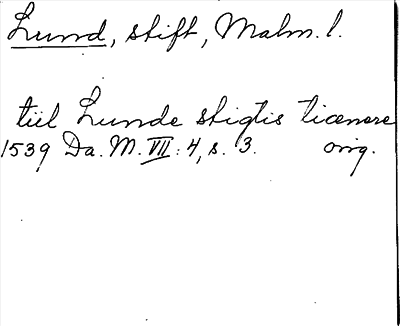 Lund, stift, Malm. l.
tiil Lunde stigtis tienere
1539 Da. M. VII: 4, s. 3. orig.